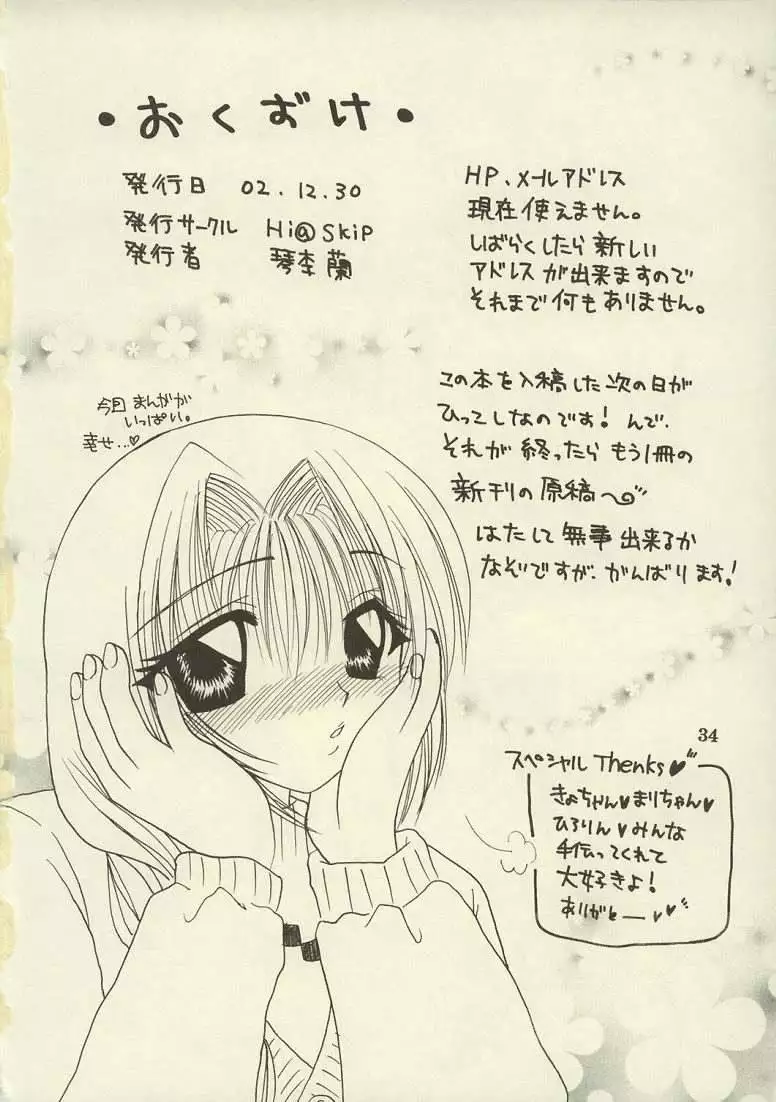 ・おくずけ・
発行日 02.12.30
発行サークル Hi@SKiP
発行者 琴李蘭
HP、メールアドレス
現在使えません。
しばらくしたら新しい
アドレスが出来ますので
それまで何もありません。
今回 まんがが
いっぱい。
幸せ…♡
この本を入稿した次の日が
ひっこしなのです！んで、
それが終ったらもう1冊の
新刊の原稿〜
はたして無事出来るか
なぞですが、がんばります！
34
スペシャル Thenks♥
きょちゃん♥まりちゃん♥
ひろりん♥みんな
手伝ってくれて
大好きよ！
ありがと—♥♥